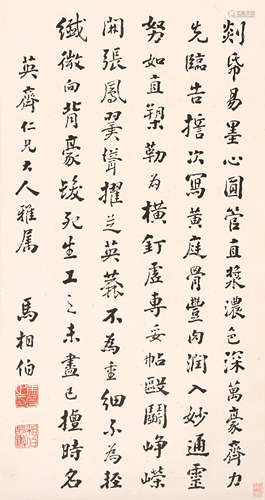 剡帋易墨心圓管直漿濃色深萬豪齊力
先臨告誓次寫黃庭骨豐肉潤入妙通靈
努如直槊勒為橫釘虛專妥帖毆鬭崢嶸
開張鳳翼聳擢芝英麤不為重細不為輕
纖微向背豪髮死生工之未盡已擅時名
英齊仁兄大人雅屬 馬相伯